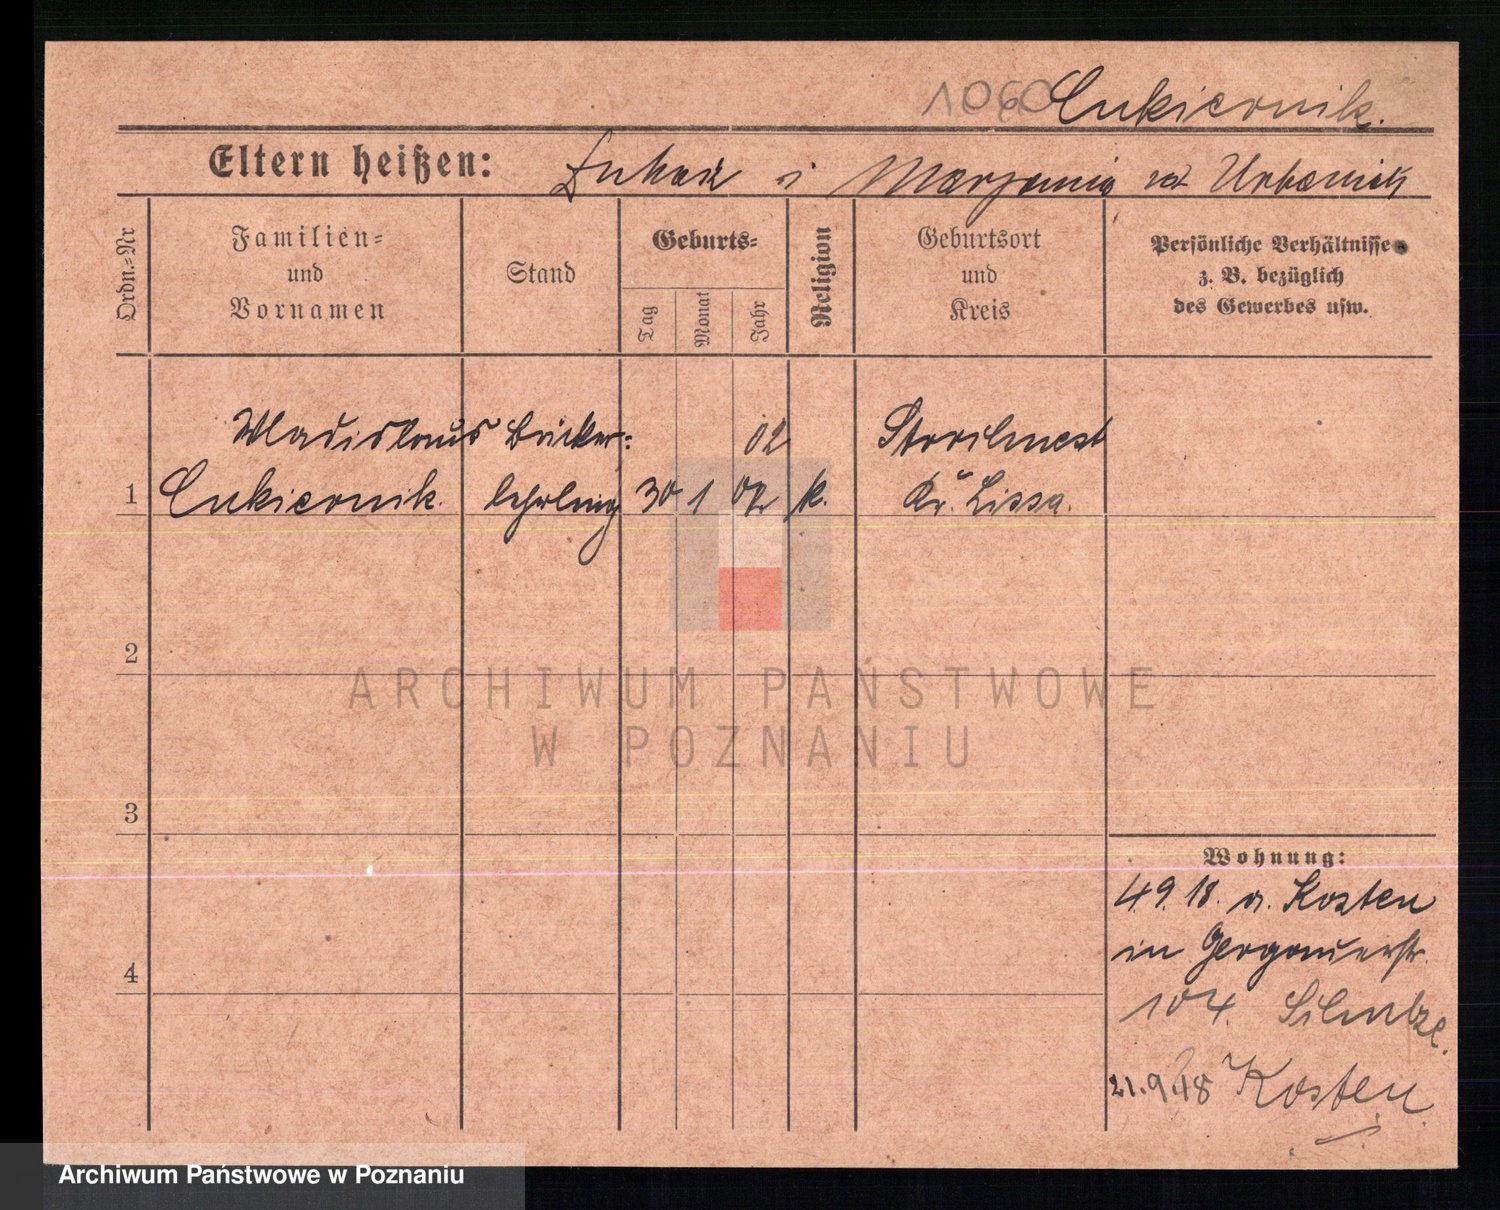 1060 Cukiernik.
Eltern heißen: Łukasz i Marjanna z d. Urbaniak
Ordn.=Nr
Familien=
und
Vornamen
Stand
Geburts=
Tag
Monat
Jahr
Religion
Geburtsort
und
Kreis
Persönliche Verhältnisse
z. B. bezüglich
des Gewerbes usw.
Wladislaus Bäcker= 02 Storchnest
1 Cukiernik. lehrling 30 1 02 k. Kr. Lissa.
2
3
4
Wohnung:
4.9.18. v. Kosten
in
104.
21.9.18 Kosten
ARCHIWUM PAŃSTWOWE
W POZNANIU
Archiwum Państwowe w Poznaniu